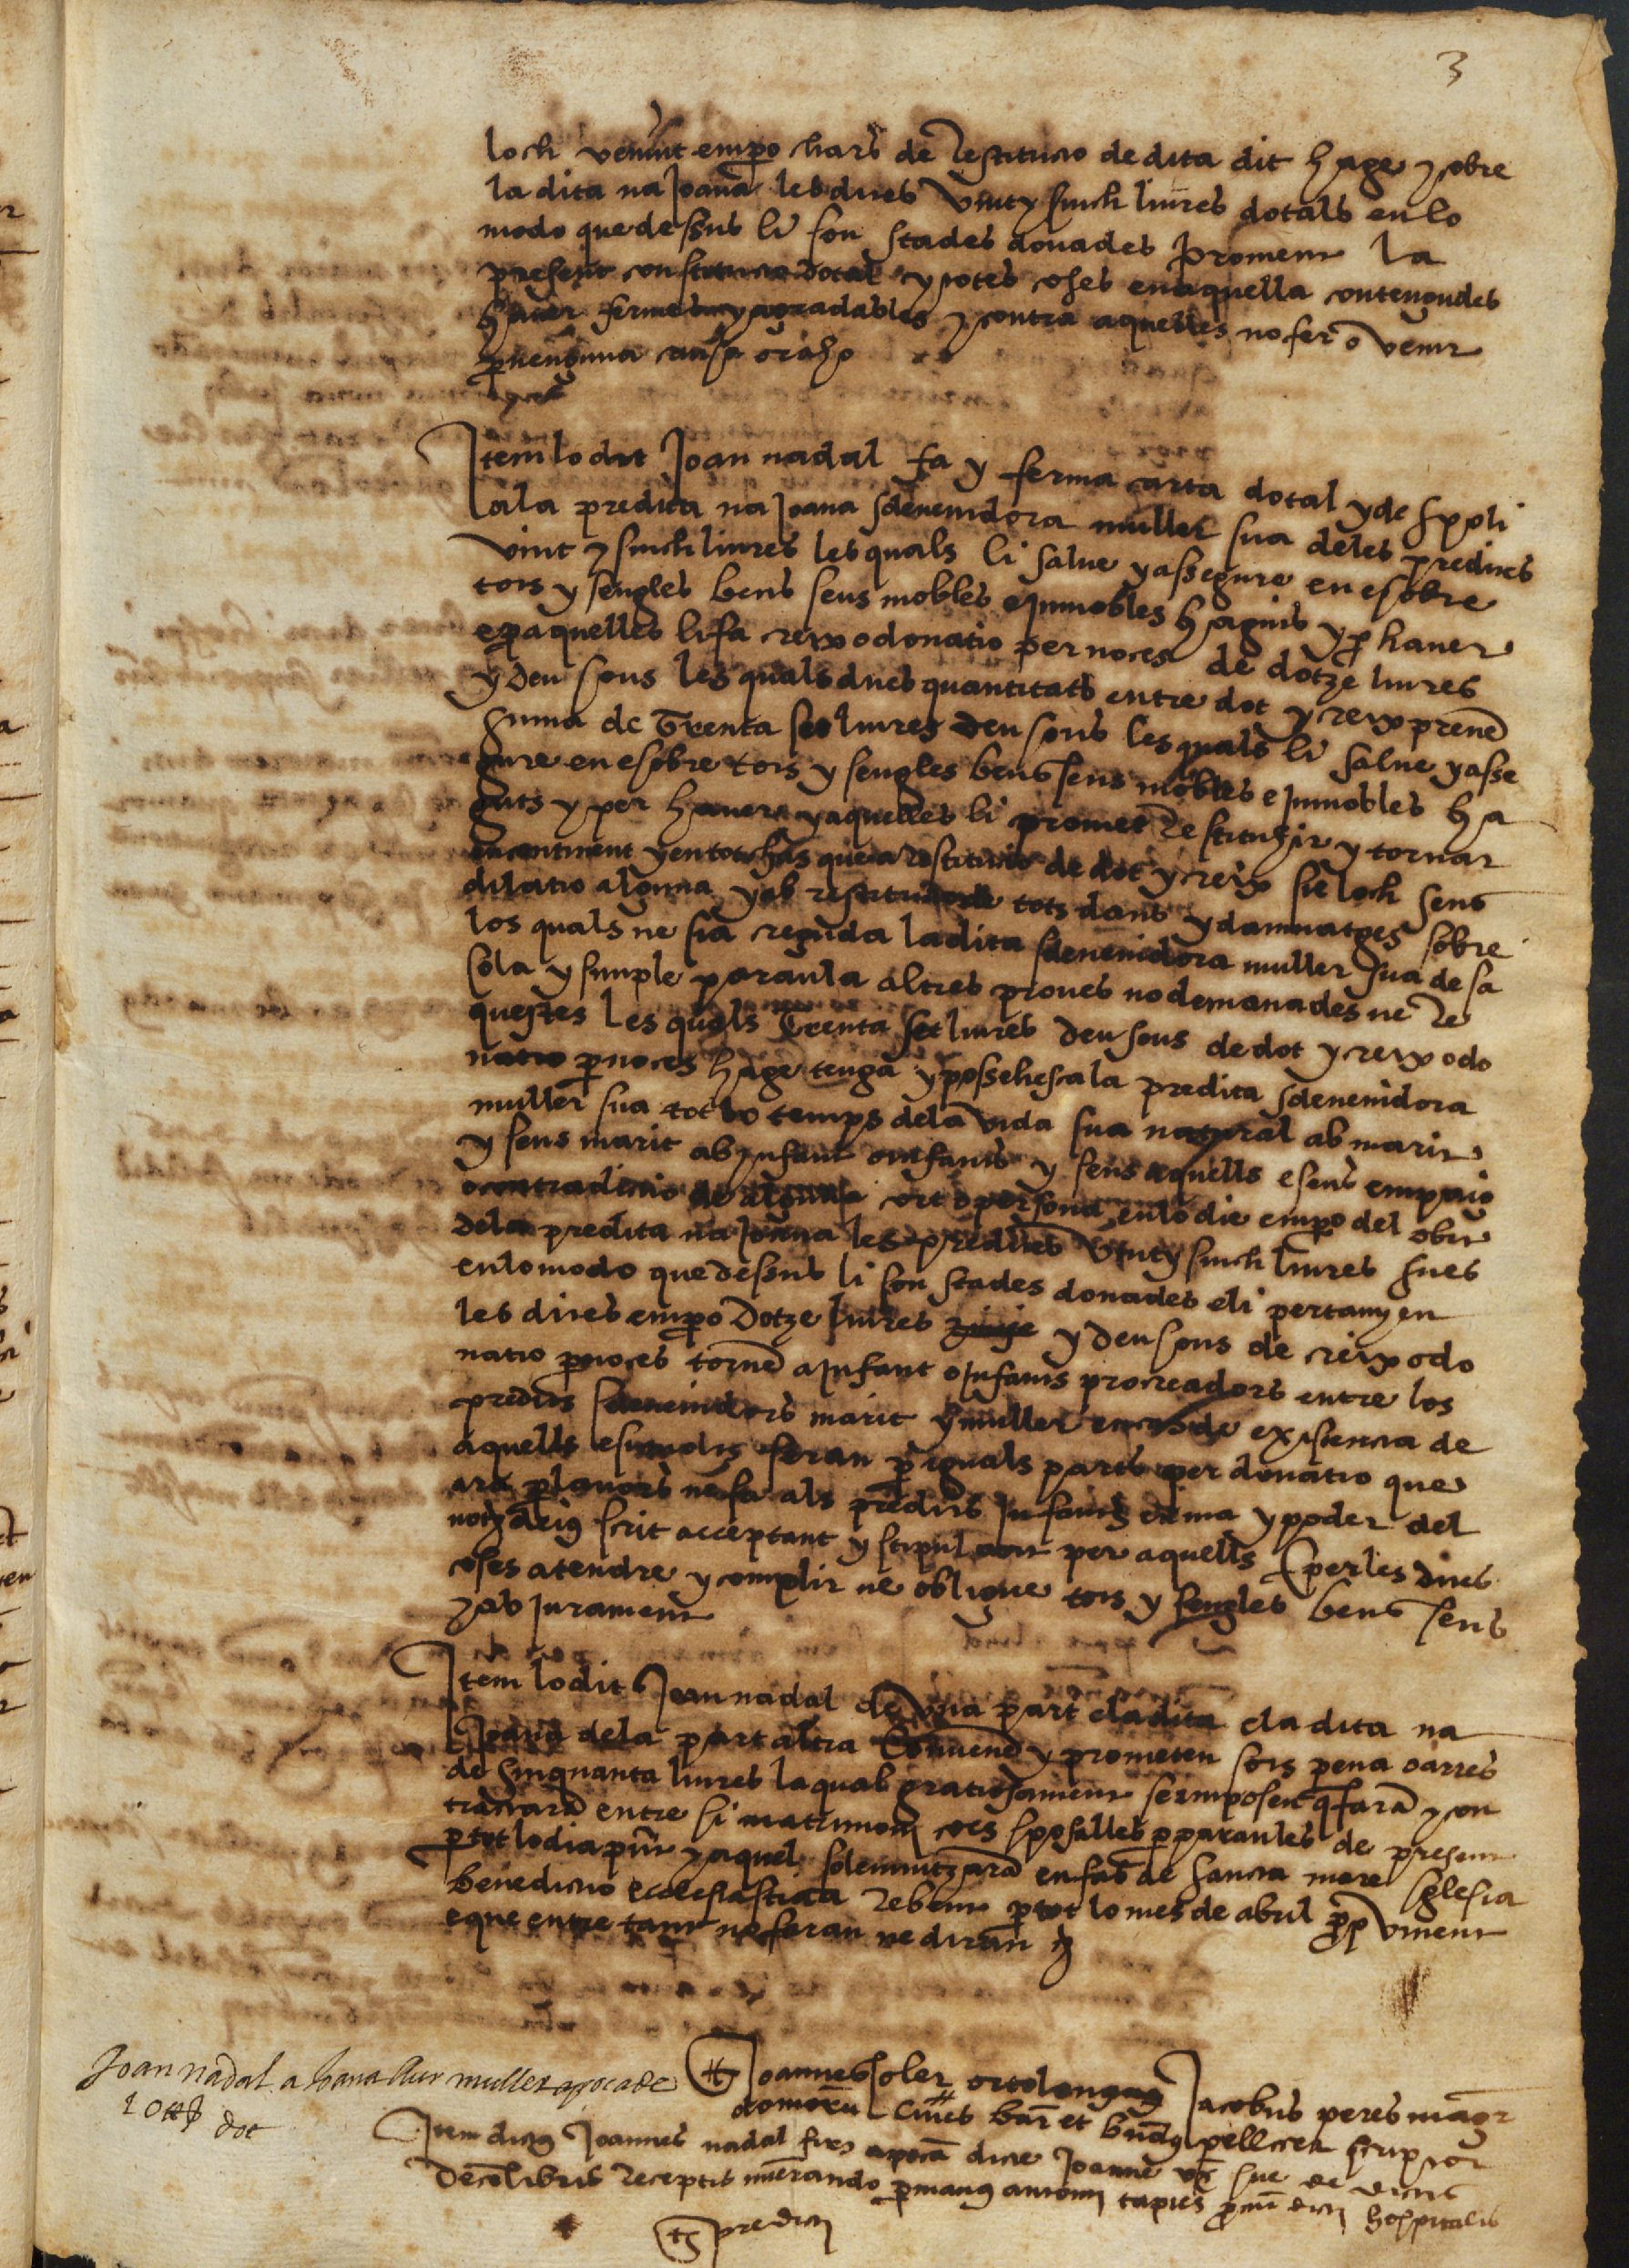 3
loch venint empo cars de restitucio de dita dit hage y cobre
la dita na Joana les dites vint y sinch liures dotals en lo
modo que dessus li son stades donades Promem la
present constitucio dotal y totes coses en aquella contengudes
haver fermes y agradables y contra aquelles no fer o venir
per neguna causa o raho
Item lo dit Joan nadal fa y ferma carta dotal y de spoli
a la predita na Joana sdevenidora muller sua de les predites
vint y sinch liures les quals li salve y assegure en e sobre
tots y sengles bens seus mobles e Inmobles haguts y per haver
e per aquelles li fa creix o donatio per noces de dotze liures
y deu sous les quals dues quantitats entre dot y creix prene
suma de Trenta set liures deu sous les quals li salve y asse
gure en e sobre tots y sengles bens seus mobles e Inmobles ha
guts y per haver y aquelles li promet Restituhir y tornar
encontinent y en tot cas que a restitucio de dot y creix sie loch sens
dilatio alguna y ab restitucio de tots dans y damnatges sobre
los quals ne sia creguda la dita sdevenidora muller sua de sa
sola y simple paraula altres proves no demanades ne Re
questes Les quals Trenta set liures deu sous de dot y creix o do
natio per noces hage tenga y possehesca la predita sdevenidora
muller sua tot lo temps de la vida sua natural ab marit
y sens marit ab infant o infants y sens aquells e sens empaig
o contradictio de alguna cort o persona en lo die empo del obit
de la predita na Joana les predites vint y sinch liures sues
en lo modo que dessus li son stades donades e li pertanyen
les dites empo Dotze liures y deu sous de creix o do
natio per noces torne a Infant o Infants procreadors entre los
predits sdevenidors marit y muller existencia de
aquells e si molts seran per iguals parts per donatio que
ara per lavors ne fa als predits Infants en ma y poder del
not dejus scrit acceptant y stipulant per aquells E per les dites
coses atendre y complir ne obligue tots y sengles bens seus
y ab jurament
Item lo dit Joan nadal de una part e la dita e la dita na
Joana de la part altra Convenen y prometen sots pena o arres
de sinquanta liures la qual gratiosament se imposen q fara y con
tractara entre si matrimoni ces sposalles per paraules de present
per tot lo dia pnt y aquel solemnitzara en fas de sancta mare sglesia
benedictio ecclesiastica Rebent per tot lo mes de abril prop vinent
e que entre tant no feran ne diran
Joan nadal a Joana muller apoca de
10 dot
ts Joannes soler ortolanus Jacobus peres magr
domoru cives bar et pellicer scriptor
Item dictus Joannes nadal fires apoca dicte Joanne ux sue de dictis
decem libris Receptis numerando per manus antonii tapies dicti hospitalis
ts predicti